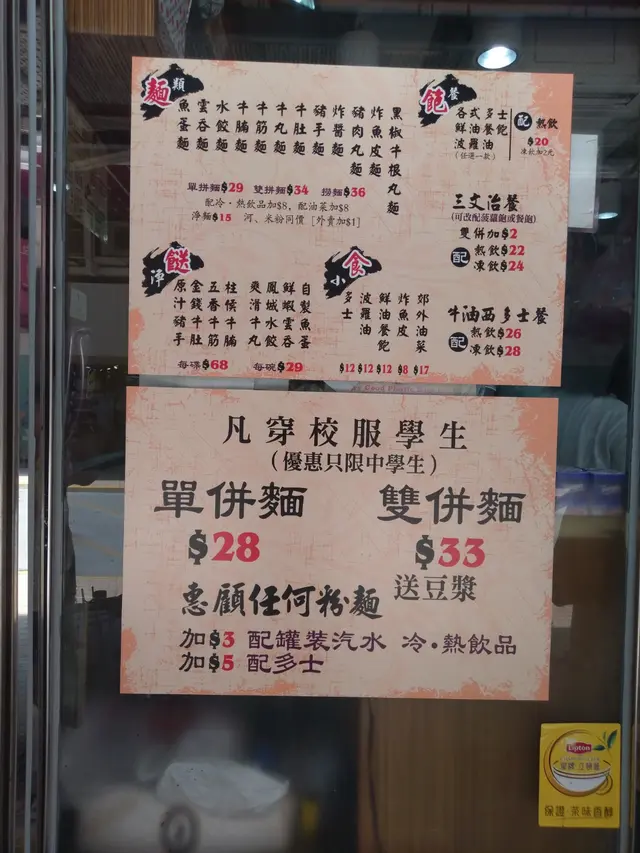 麵類
魚蛋麵
雲吞麵
水餃麵
牛腩麵
牛筋麵
牛丸麵
牛肚麵
豬手麵
炸醬麵
豬肉丸麵
炸魚皮麵
黑椒牛根丸麵
單拼麵$29 雙拼麵$34 撈麵$36
配冷·熱飲品加$8, 配油菜加$8
淨麵$15 河、米粉同價 [外賣加$1]
飽餐
各式多士
鮮油餐飽
波羅油
(任選一款)
配 熱飲
$20
凍飲加2元
三文治餐
(可改配菠蘿飽或餐飽)
雙併加$2
配 熱飲$22
凍飲$24
牛油西多士餐
配 熱飲$26
凍飲$28
淨餸
原汁豬手
金錢牛肚
五香牛筋
柱侯牛腩
每碟$68
爽滑牛丸
鳳城水餃
鮮蝦雲吞
自製魚蛋
每碗$29
小食
多士
波羅油
鮮油餐飽
炸魚皮
郊外油菜
$12 $12 $12 $8 $17
凡穿校服學生
(優惠只限中學生)
單併麵 雙併麵
$28 $33
送豆漿
惠顧任何粉麵
加$3 配罐裝汽水 冷·熱飲品
加$5 配多士
Lipton
保證·茶味香醇